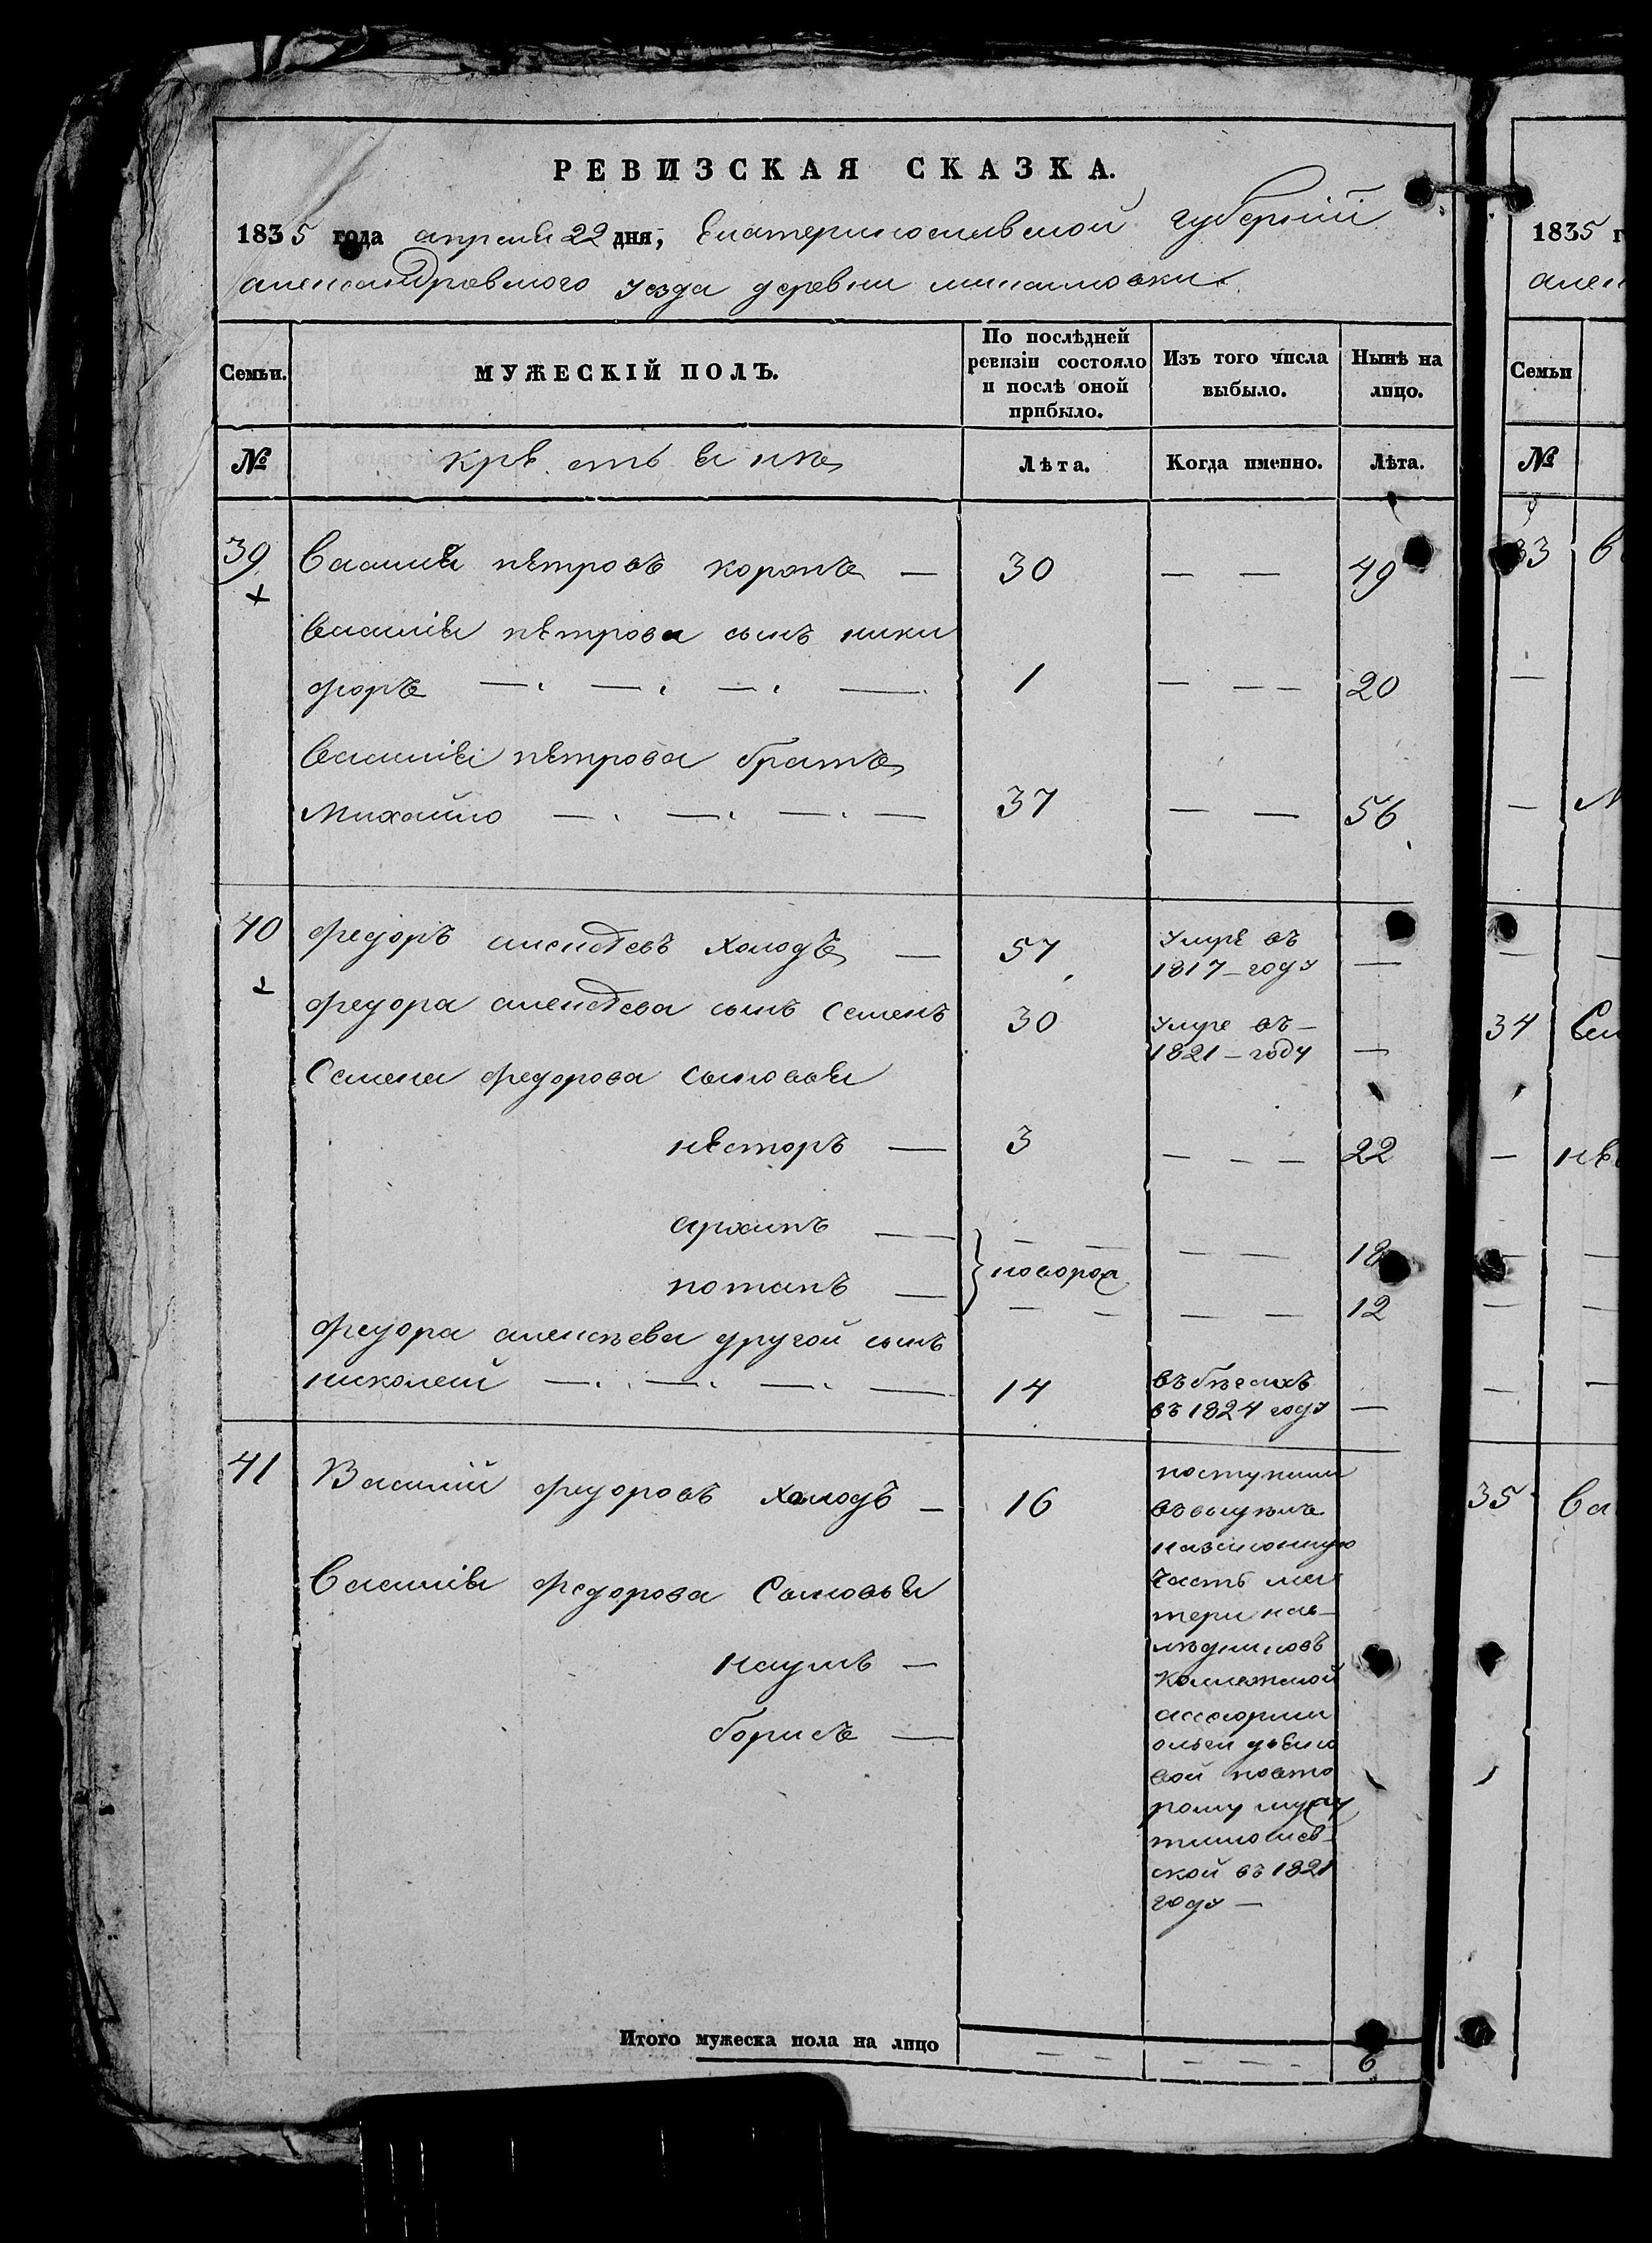 РЕВИЗСКАЯ СКАЗКА.
1835 года апреля 22 дня, Екатеринославской губернии
александровского уезда деревни михайловки
Семьи.
МУЖЕСКІЙ ПОЛЪ.
По послѣдней ревизіи состояло и послѣ оной прибыло.
Изъ того числа выбыло.
Нынѣ на лицо.
№
Лѣта.
Когда именно.
Лѣта.
39 Василей петровъ — 30 — — 49
василія петрова сынъ ники
форъ — . — . — . — 1 — — — 20
Василія петрова братъ
Михайло — . — . — . — 37 — — 56
40 федоръ алексеевъ холодъ — 57 Умре въ 1817 – году —
федора алексеева сынъ Семенъ 30 Умре въ – 1821 – году —
Семена федорова сыновья
несторъ — 3 — — — 22
архипъ — — — — — 18
новорож
потапъ — — — — — 12
федора алексѣева другой сынъ
николай — . — . — . — 14 въ бѣгахъ въ 1824 году —
41 Василій федоровъ холодъ — 16
Василія федорова Сыновья
наумъ —
борисъ —
поступили
въ
часть ма
тери нас–
лѣдниковъ
Коллежской
вой повто
рому
ской въ 1821
году —
Итого мужеска пола на лицо — — — — — 6
1835 г
алек
Семьи
№
33
М
34 Сем
не
35 Ва